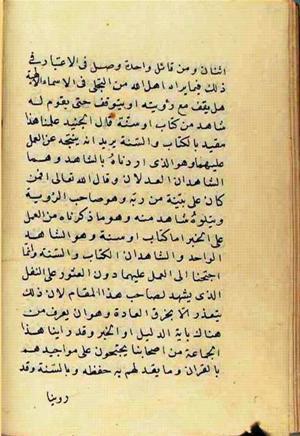 اثنان ومن قائل واحدة وصل فى الاعتبار فى
ذلك فيما يراه اهل الله من التجلى فى الاسماء الالهية
هل يقف مع رؤيته او يتوقف حتى يقوم له
شاهد من كتاب او سنة قال الجنيد علمنا هذا
مقيد بالكتاب والسنة يريد انه ينتجه عن العمل
عليهما وهو الذى اردناه بالشاهد وهما
الشاهدان العدلان وقال الله تعالى افمن
كان على بينة من ربه وهو صاحب الرؤية
ويتلوه شاهد منه وهو ما ذكرناه من العمل
على الخبر اما كتاب او سنة وهو الشاهد
الواحد والشاهدان الكتاب والسنة وانما
احتجنا الى العمل عليهما دون العثور على النقل
الذى يشهد لصاحب هذا المقام لان ذلك
يتعذر الا بخرق العادة وهو ان يعرف من
هناك باية الدليل او الخبر وقد راينا هذا
الجماعة من اصحابنا يحتجون على مواجيدهم
بالقران وما يقد لهم به حفظه وبالسنة وقد
روينا